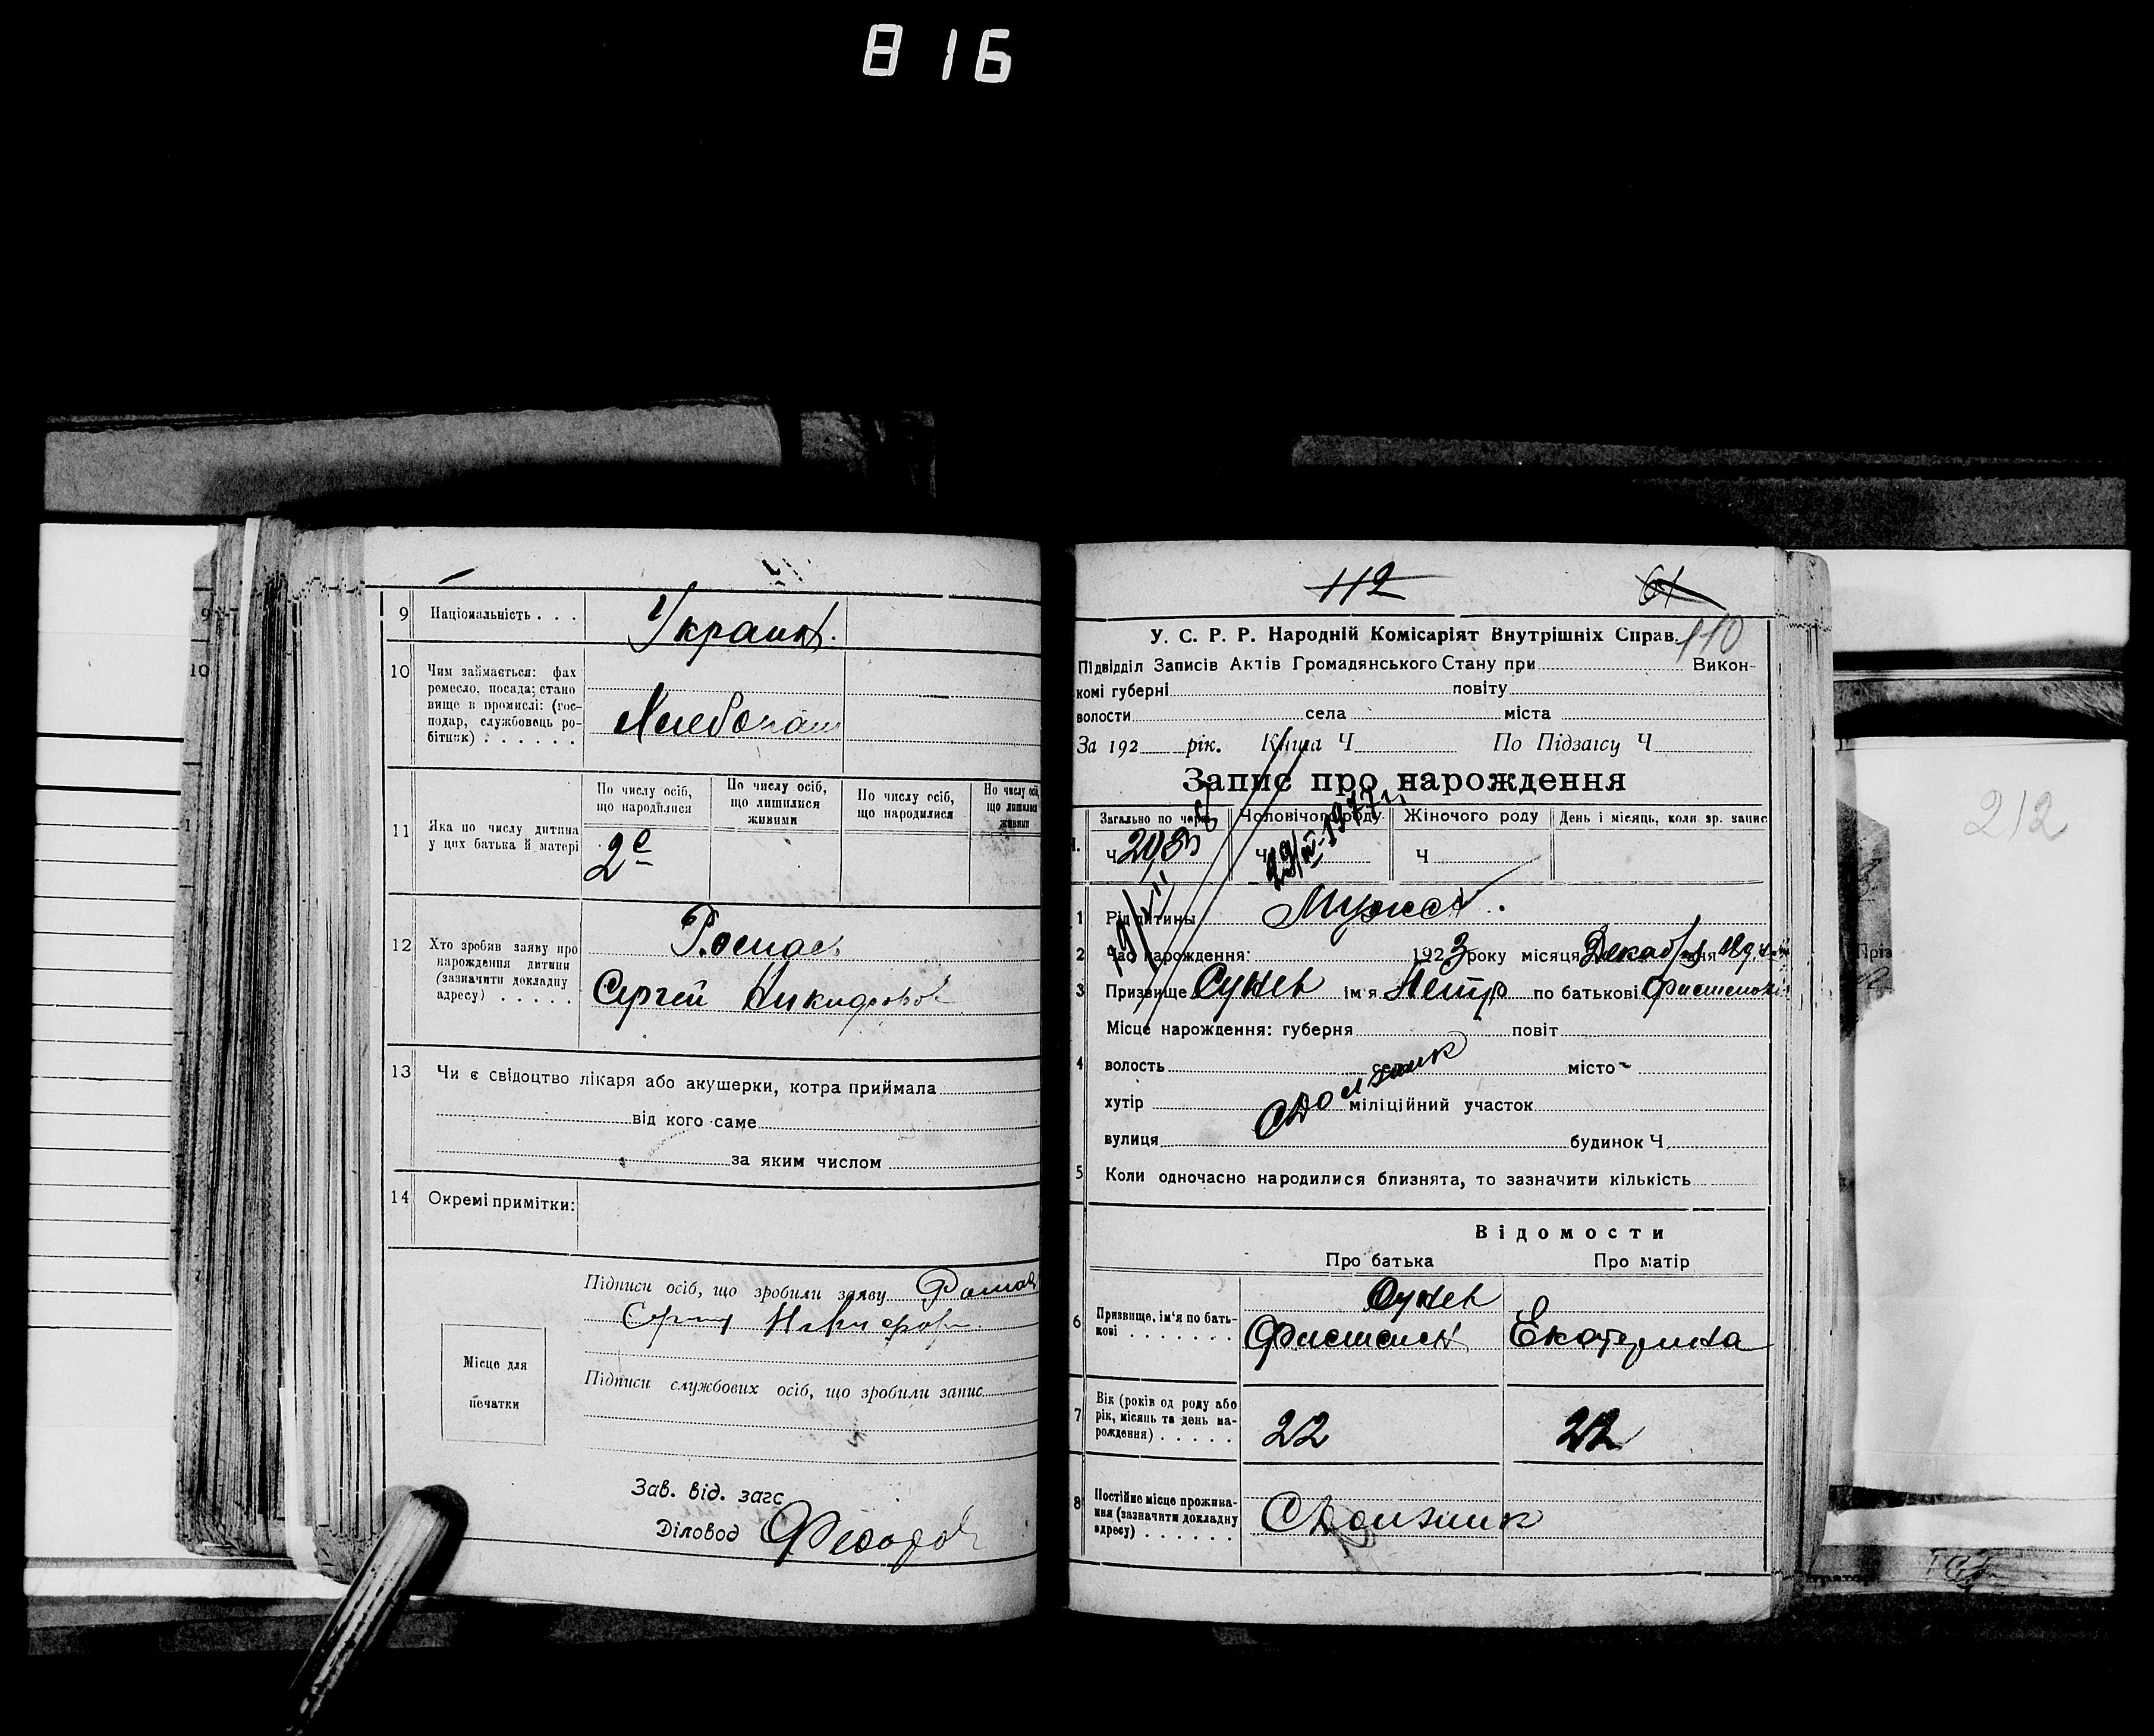 816
9 Національність . . .
Украин.
10 Чим займається: фах
ремесло, посада; стано
вище в промислі: (гос-
подар, службовець ро-
бітник) . . . . . .
Хлебопаш
11 Яка по числу дитина
у цих батька й матері
По числу осіб,
що народилися
По числу осіб,
що лишилися
живими
По числу осіб,
що народилися
По числу осіб,
що лишилися
живими
2е
12 Хто зробив заяву про
нарождення дитини
(зазначити докладну
адресу) . . . . .
Сергей Никифоров
13 Чи є свідоцтво лікаря або акушерки, котра приймала
від кого саме
за яким числом
14 Окремі примітки:
Підписи осіб, що зробили заяву
Підписи службових осіб, що зробили запис
Місце для
печатки
Зав. від. загс
Діловод
112
61
110
У. С. Р. Р. Народній Комісаріят Внутрішніх Справ.
Підвідділ Записів Актів Громадянського Стану при Викон-
комі губерні повіту
волости села міста
За 192 рік. Книга Ч По Підзагсу Ч
Запис про нарождення
Загально по черзі Чоловічого роду Жіночого роду День і місяць, коли зр. запис
Ч Ч Ч
1 Рід дитини
2 Час нарождення: 1923 року місяця Декабря дня
3 Призвище ім'я Петр по батькові
Місце нарождення: губерня повіт
4 волость село місто
хутір міліційний участок
вулиця будинок Ч.
5 Коли одночасно народилися близнята, то зазначити кількість
Відомости
Про батька Про матір
6 Призвище, ім'я по бать-
кові . . . . . . .
Екатерина
7 Вік (років од роду або
рік, місяць та день на-
рождення) . . . . .
22 22
8 Постійне місце прожива-
ння (зазначити докладну
адресу) . . . . . .
212